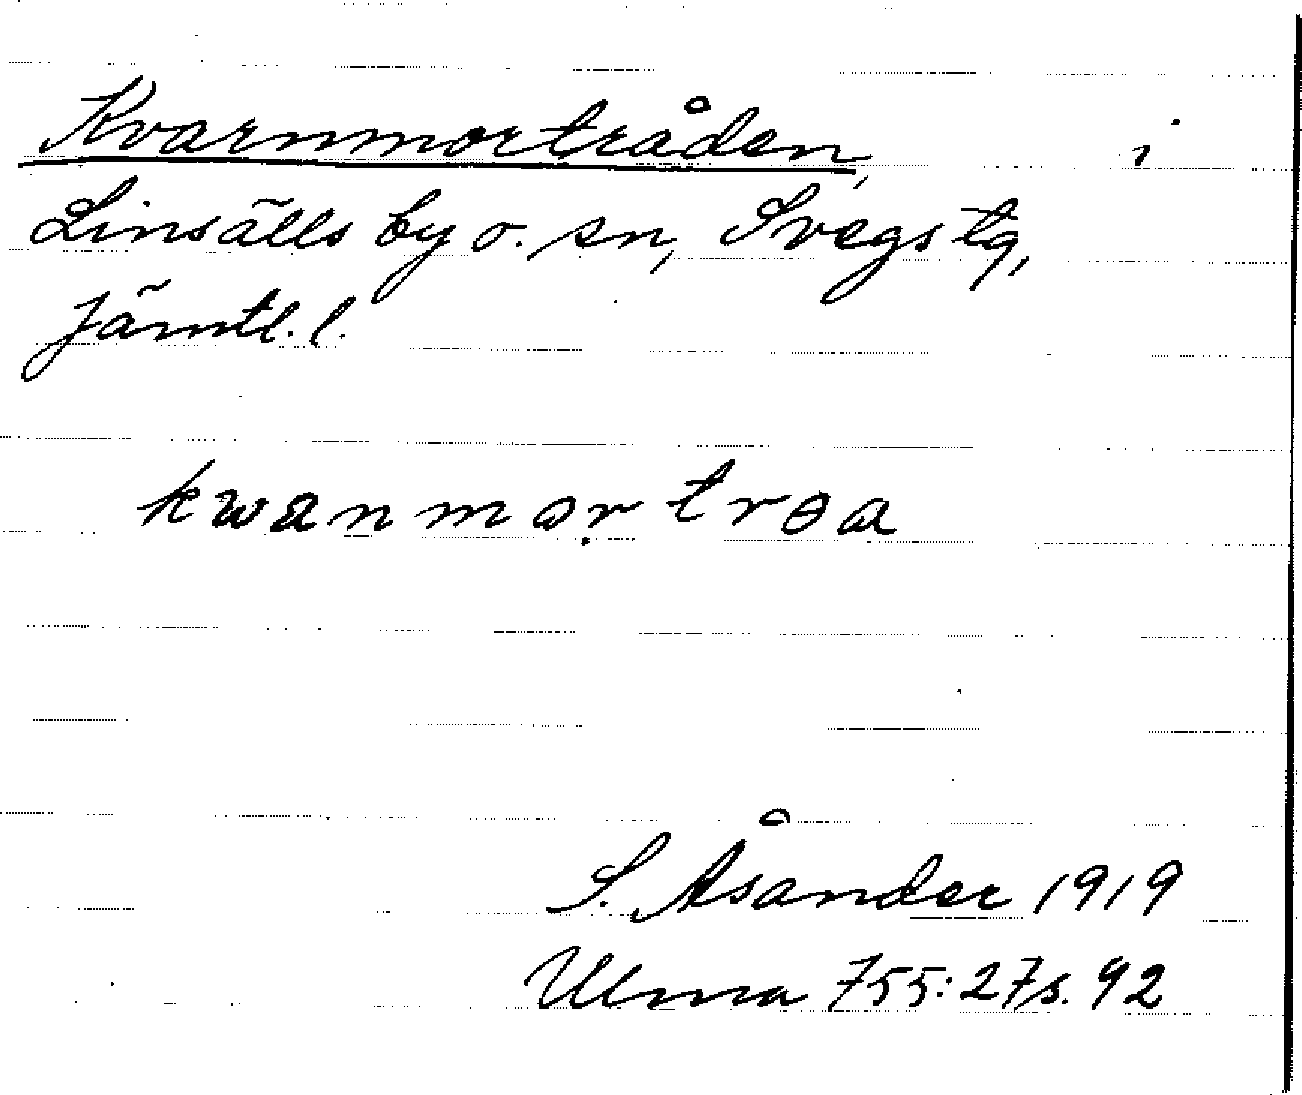 Kvarnmortråden, i
Linsälls by o. sn, Svegs tg,
Jämtl. l.
kwanmǫrtrɵa
S. Åsander 1919
Ulma 755:27 s. 92